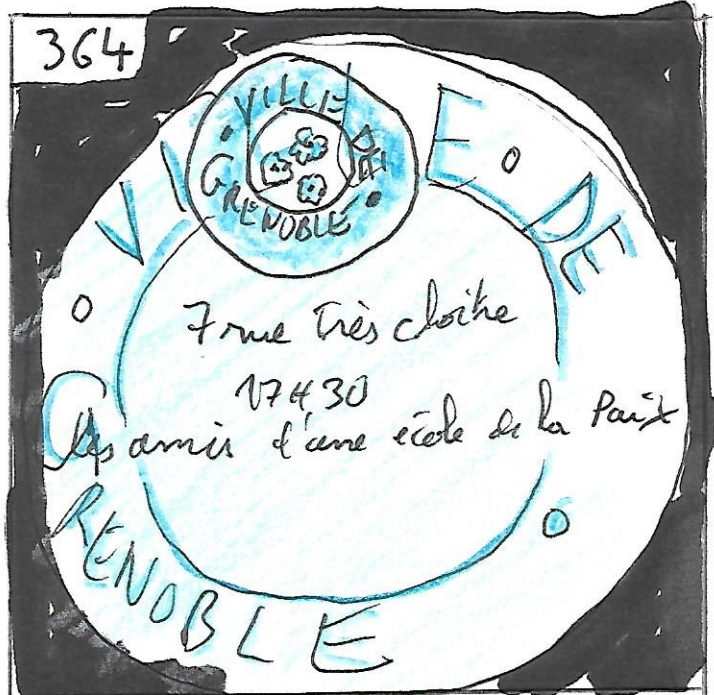 364
VILLE DE
GRENOBLE
VI E DE
GRENOBLE
7 rue Très cloître
17H30
les amis d'une école de la Paix